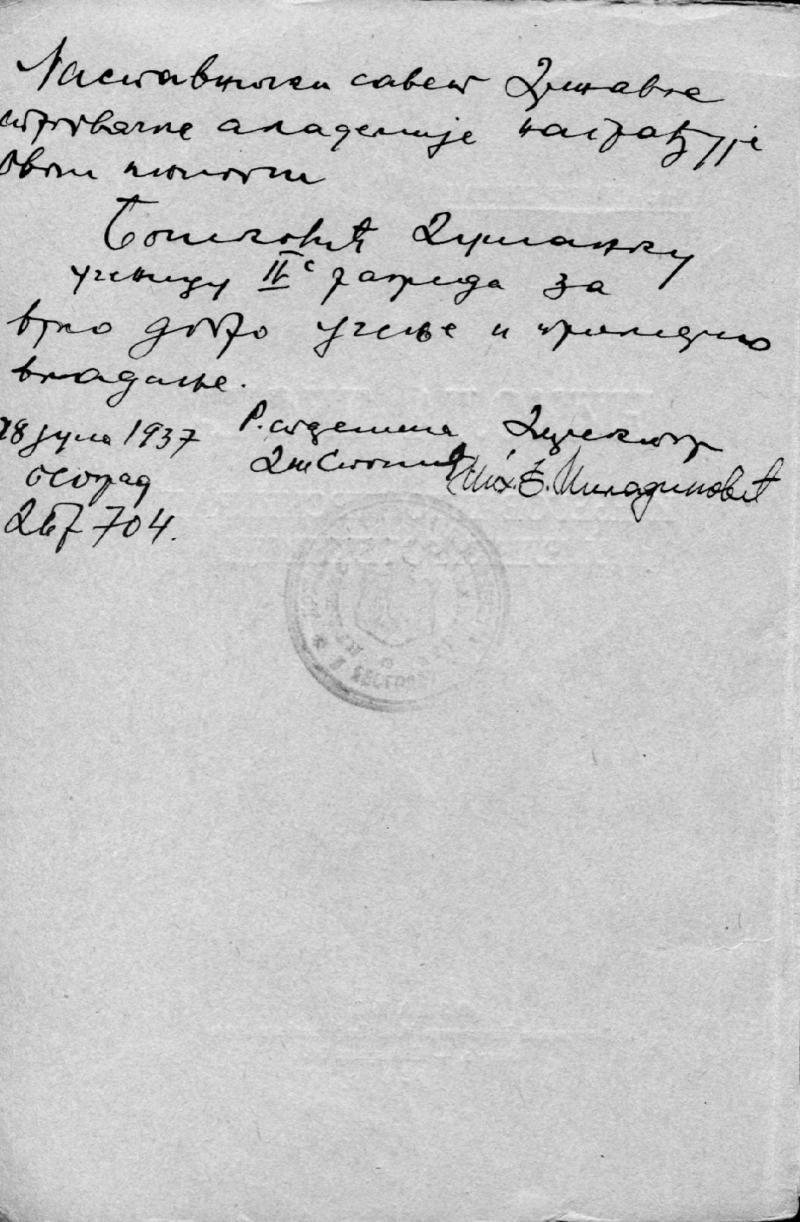 Наставнички савет Државне
трговачке академије награђује
овом књигом
Бошковић Душанку
ученицу IIc разреда за
врло добро учење и примерно
владање.
28 јуна 1937 Р. старешина Директор
Београд Мих. Б. Миладиновић
704.